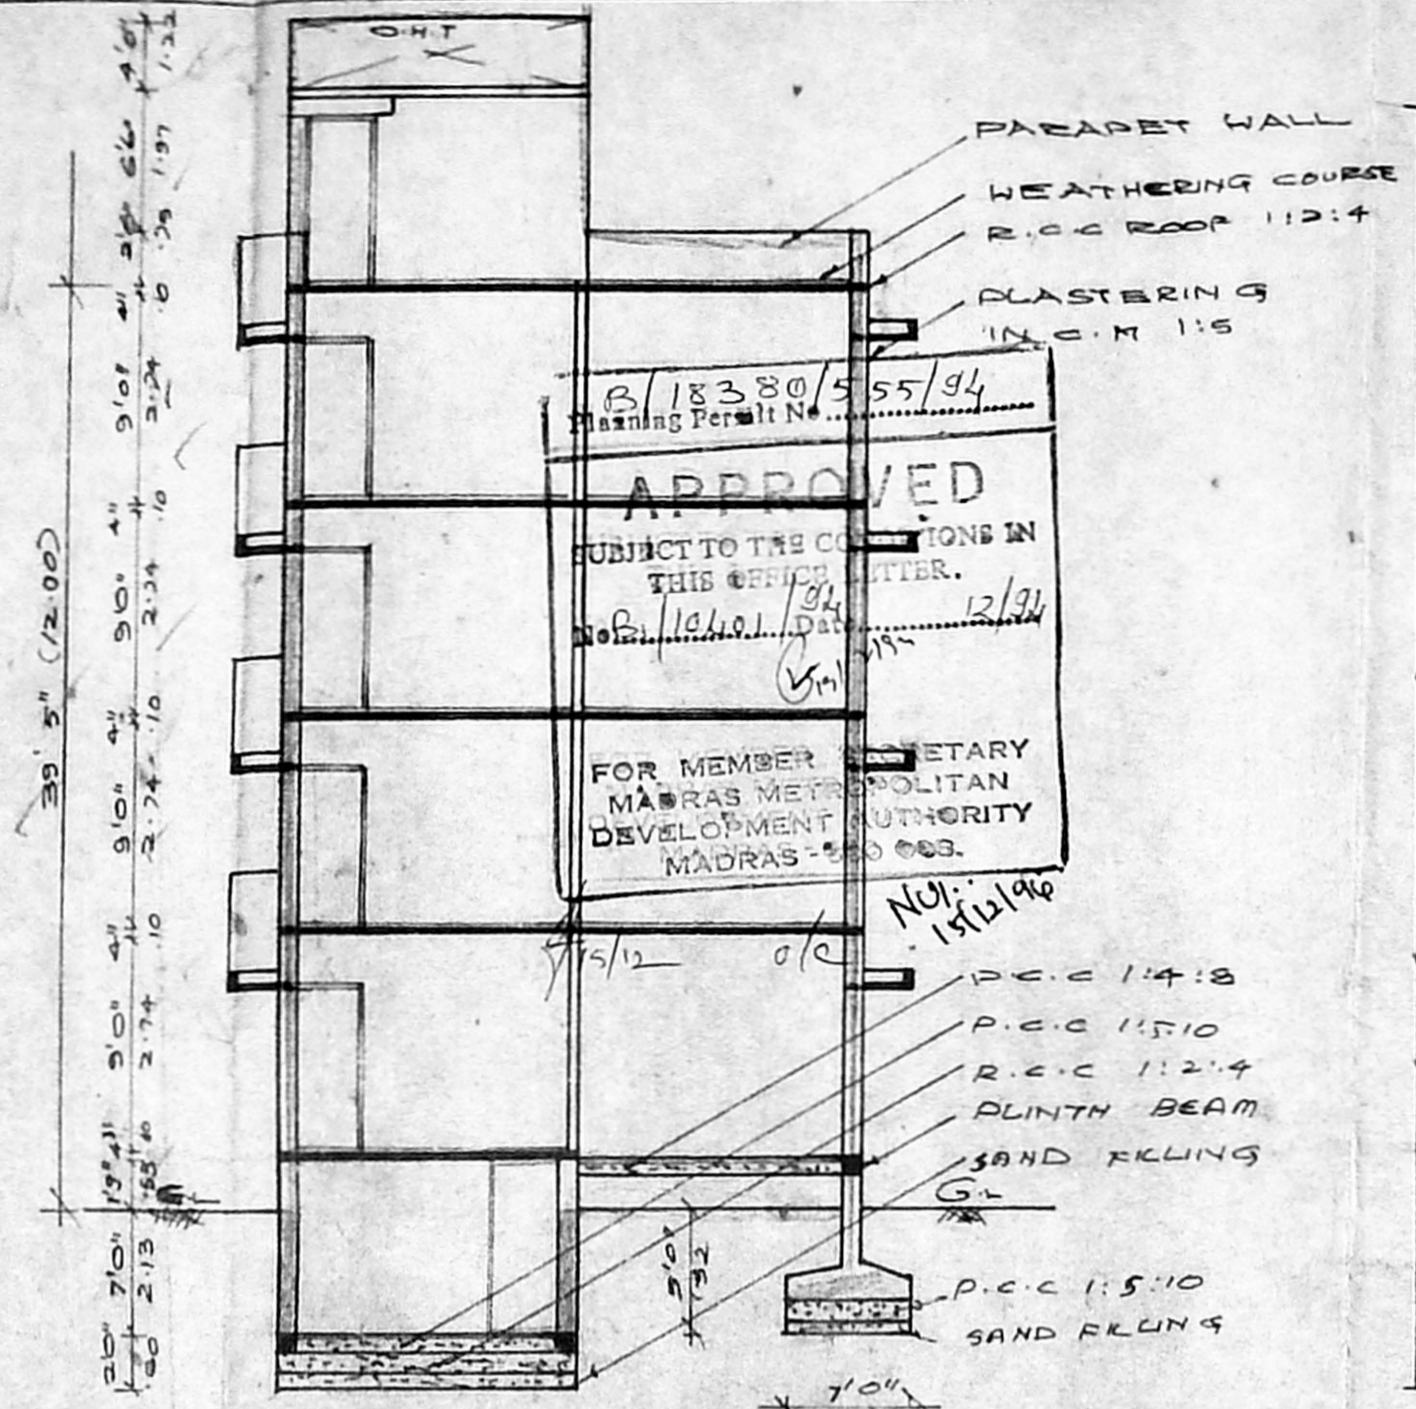 O.H.T
PARAPET WALL
WEATHERING COURSE
R.C.C ROOF 1:2:4
PLASTERING
IN C.M 1:5
B/18380/555/94
Planning Permit No
APPROVED
SUBJECT TO THE CONDITIONS IN
THIS OFFICE LETTER.
No B1/10401/94 Date 12/94
FOR MEMBER SECRETARY
MADRAS METROPOLITAN
DEVELOPMENT AUTHORITY
MADRAS - 600 008.
15/12/94
15/12 O/C
P.C.C 1:4:8
P.C.C 1:5:10
R.C.C 1:2:4
PLINTH BEAM
SAND FILLING
G.L
P.C.C 1:5:10
SAND FILLING
5'0"
152
7'0"
39'5" (12.00)
2'0" 7'0" 1'9" 4" 9'0" 4" 9'0" 4" 9'0" 4" 9'0" 4" 6'6" 4'0"
.60 2.13 .55 10 2.74 .10 2.74 .10 2.74 .10 2.74 .10 .75 1.97 1.22